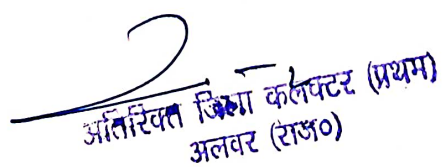 अतिरिक्त जिला कलेक्टर (प्रथम)
अलवर (राज०)